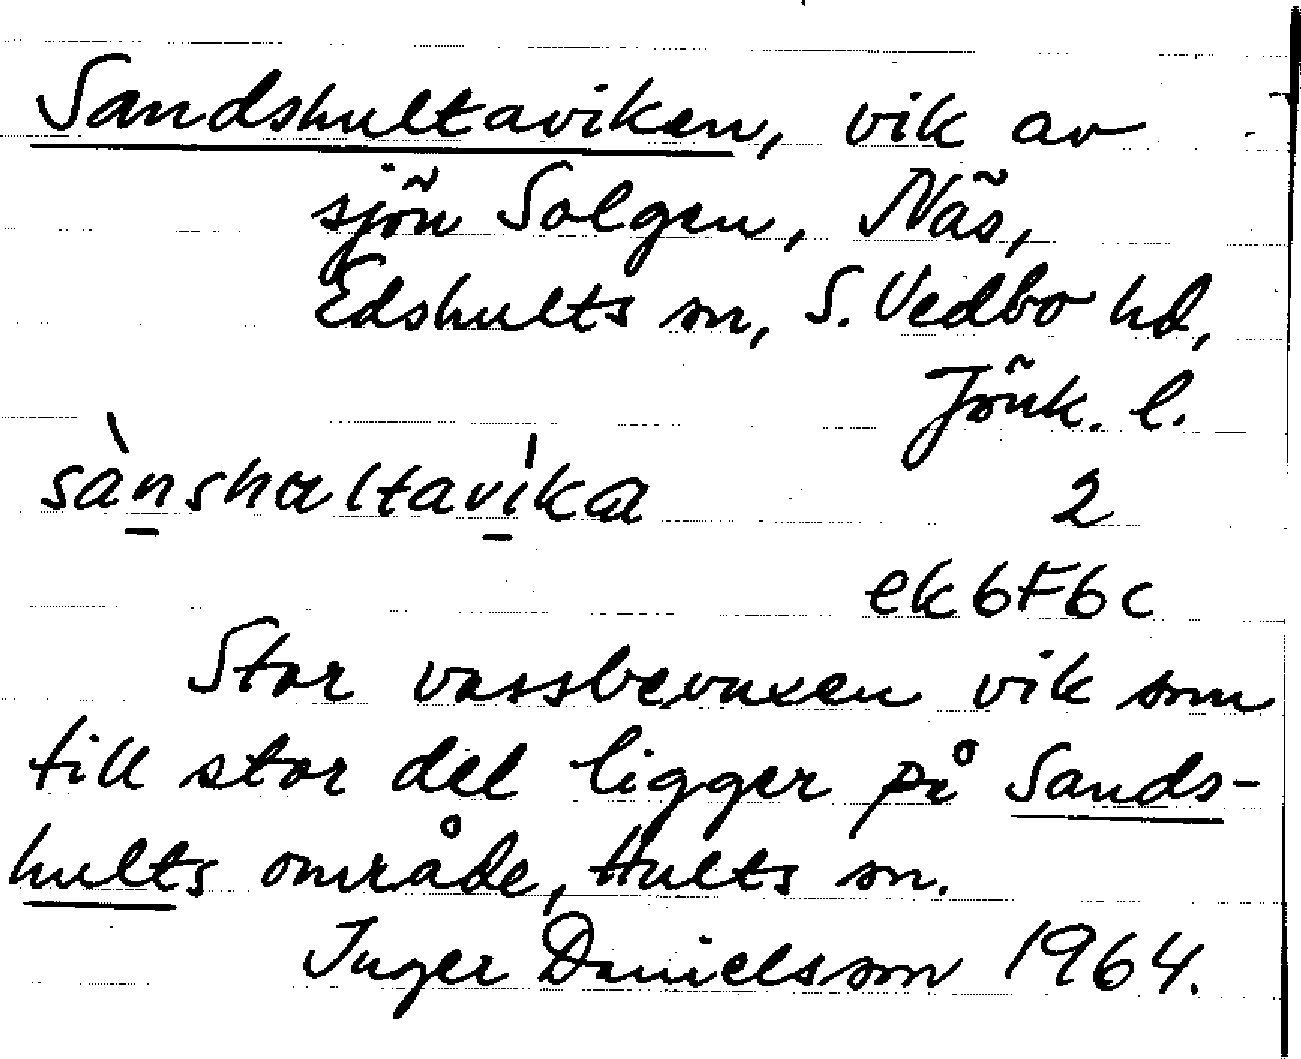 Sandshultaviken, vik av
sjön Solgen, Näs,
Edshults sn, S. Vedbo hd,
Jönk. l.
sànshultavika 2
ek 6F6c
Stor vassbevuxen vik som
till stor del ligger på Sands-
hults område, Hults sn.
Inger Danielsson 1964.